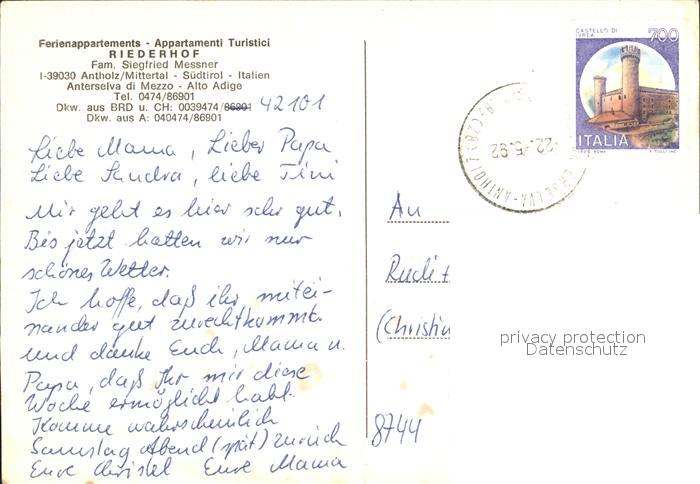 Ferienappartements - Appartamenti Turistici
RIEDERHOF
Fam. Siegfried Messner
I-39030 Antholz/Mittertal - Südtirol - Italien
Anterselva di Mezzo - Alto Adige
Tel. 0474/86901
Dkw. aus BRD u. CH: 0039474/86901 42101
Dkw. aus A: 040474/86901
Liebe Mama, Lieber Papa
Liebe Sandra, liebe Tini
Mir geht es hier sehr gut.
Bis jetzt hatten wir nur
schönes Wetter.
Ich hoffe, daß ihr mitei-
nander gut zurechtkommt.
und danke Euch, Mama u.
Papa, daß Ihr mir diese
Woche ermöglicht habt.
Komme wahrscheinlich
Samstag Abend (spät) zurück
Eure Christel Eure Mama
CASTELLO DI
IVREA
700
ITALIA
I.P.Z.S. ROMA
E. TULLI INC.
22.-5.92
ANTHOLZ (BZ)
An
Rudi +
(Christin
8744
privacy protection
Datenschutz